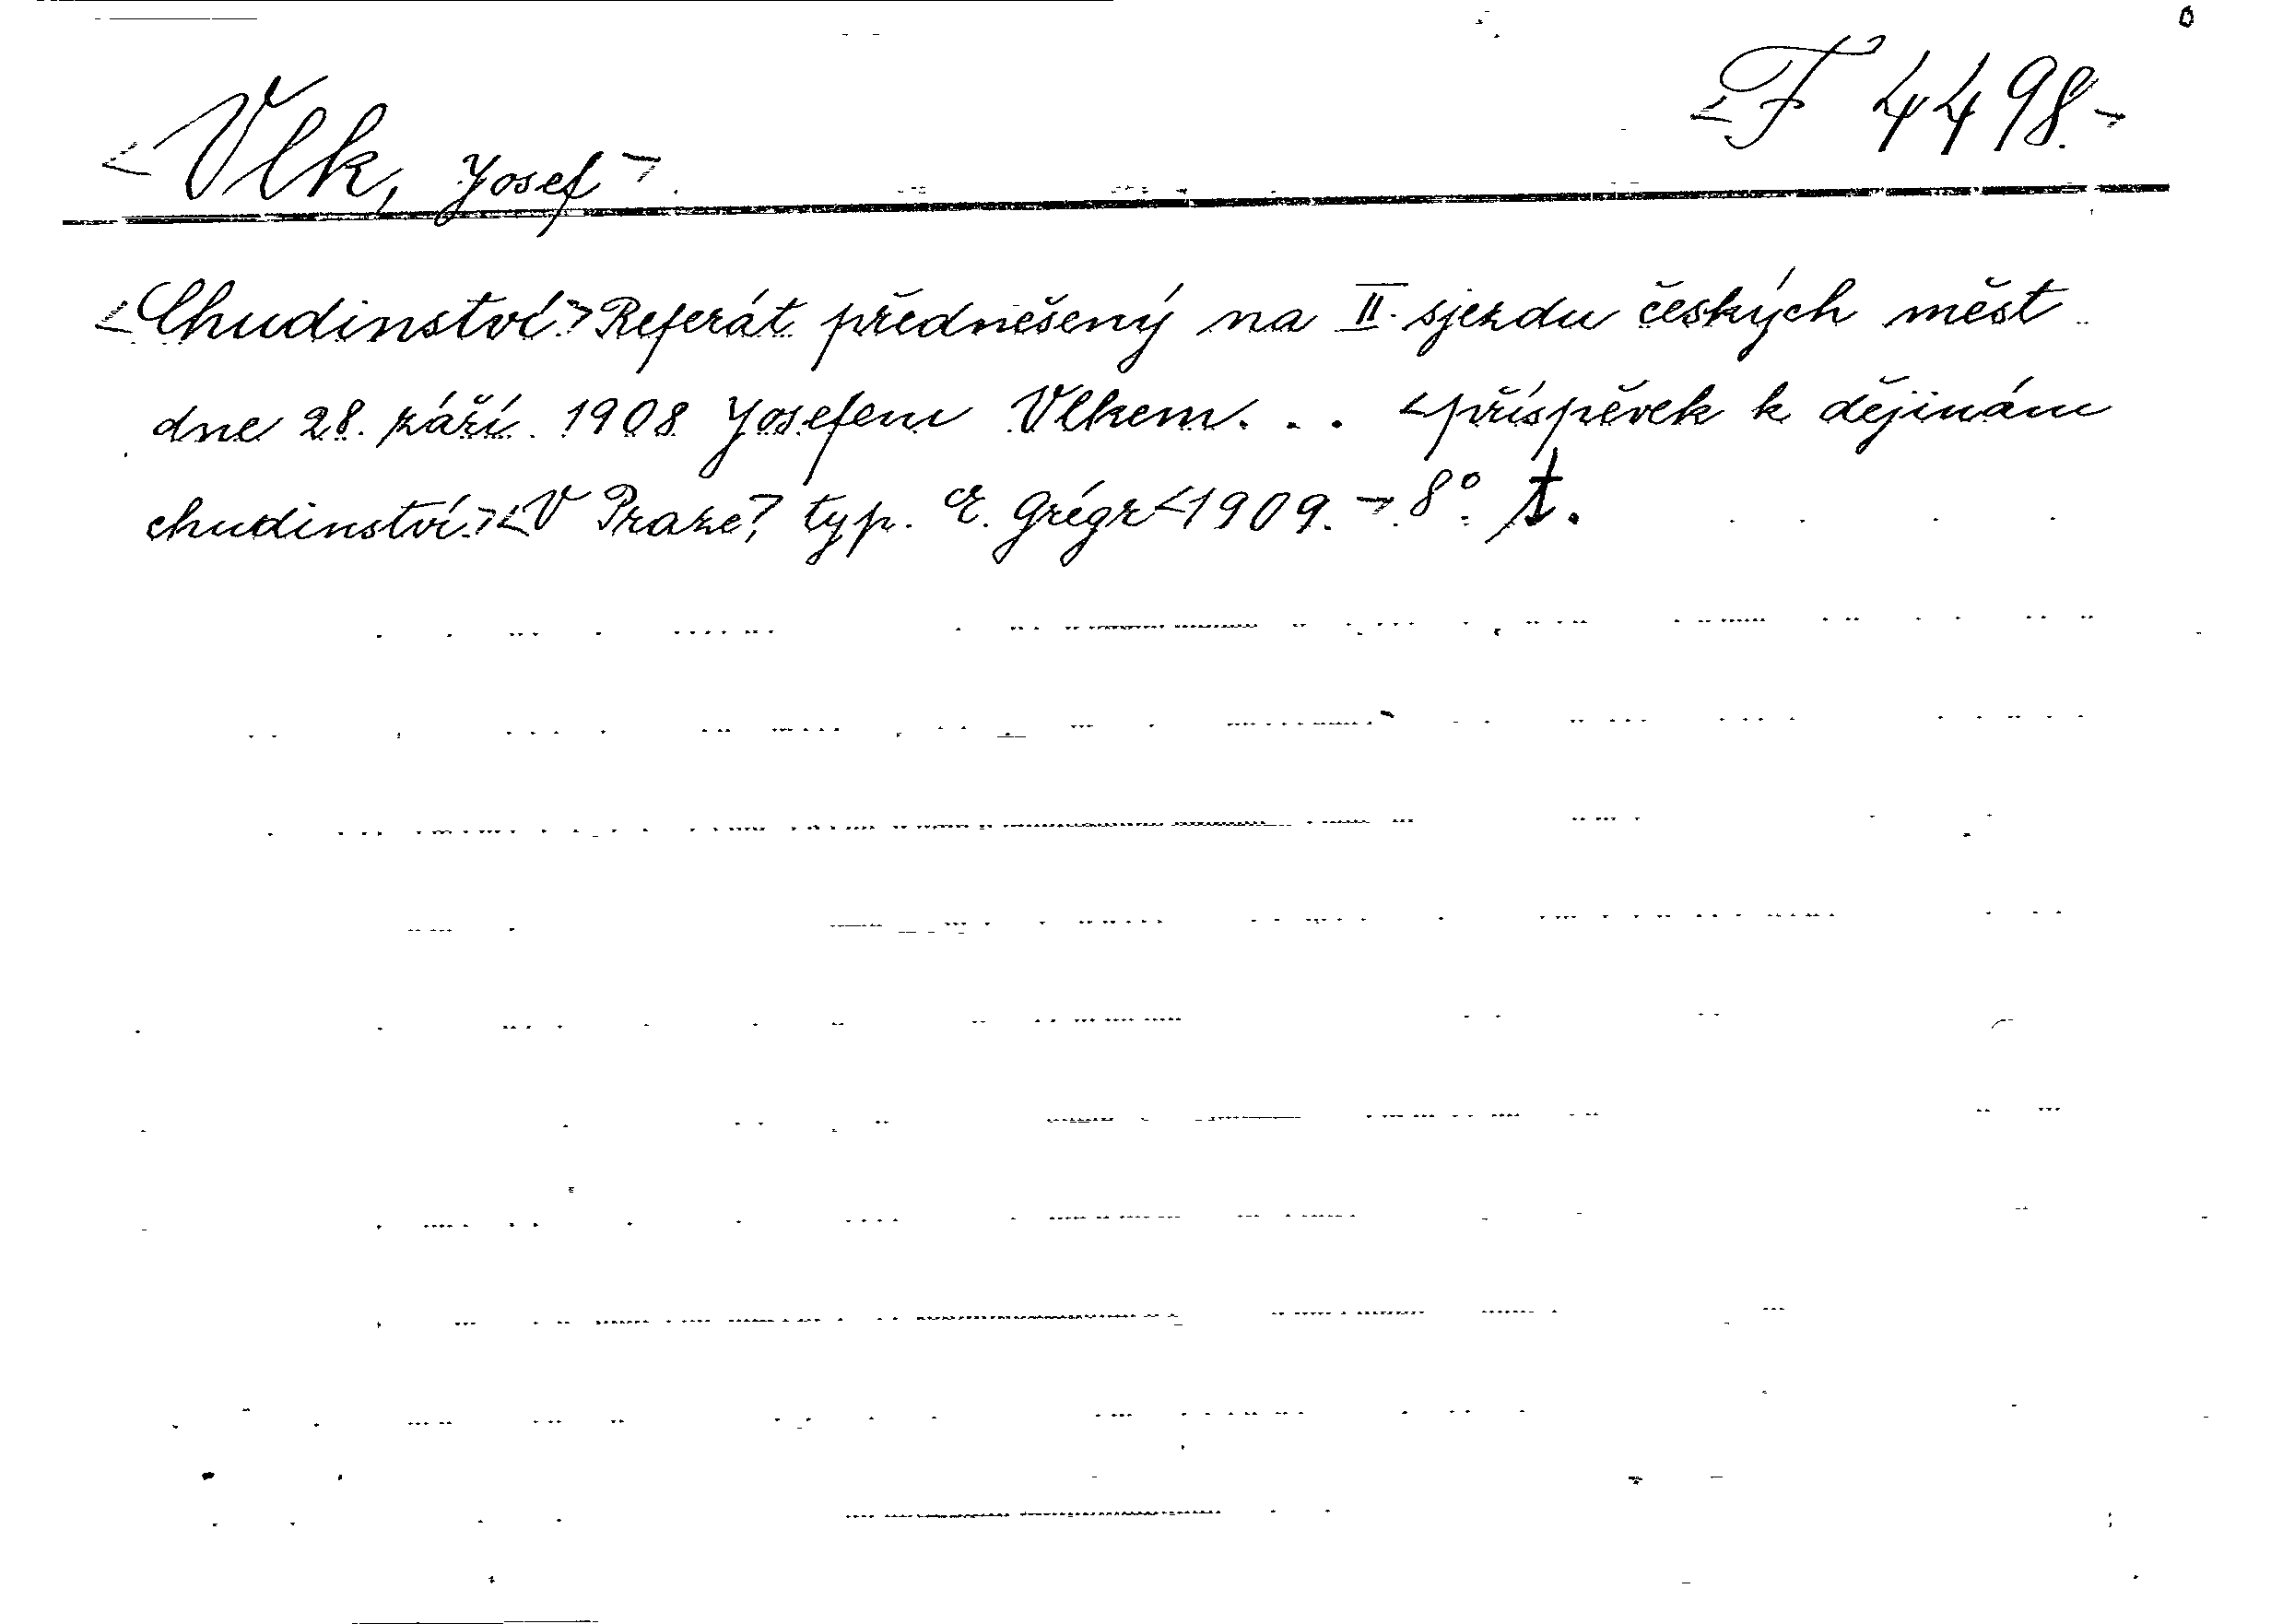 <Vlk, Josef>
<F 4498.>
<Chudinství.> Referát přednešený na II. sjezdu českých měst
dne 28. září 1908 Josefem Vlkem... <příspěvek k dějinám
chudinství.> <V Praze,> typ. E. Grégr <1909.> 8°. t.